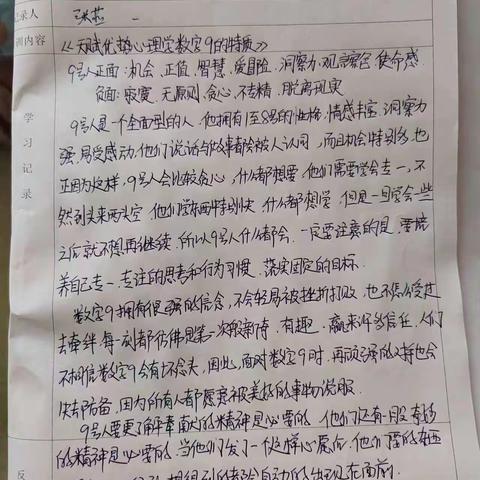 记录人
张芯
训内容
《天赋优势心理学数字9的特质》
9号人正面:机会、正值、智慧、爱冒险、洞察力、观言察色、使命感
负面:寂寞、无原则、贪心、不专精、脱离现实
学习记录
9号人是一个全面型的人,他拥有1至8号的性格,情感丰富,洞察力
强,易受感动,他们说话与做事都会被人认同,而且机会特别多,也
正因为这样,9号人会比较贪心,什么都想要,他们需要学会专一,不
然到头来两头空,他们学东西特别快,什么都想学,但是一旦学会一些
之后就不想再继续,所以9号人什么都会,一定要注意的是,要培
养自己专一、专注的思考和行为习惯,落实固定的目标.
数字9拥有很强的信念,不会轻易被挫折打败,也不怎么受过
去牵绊,每一刻都仿佛是第一次般新奇、有趣,赢来所多信任,人们
不相信数字9会有坏念头,因此,面对数字9时,再顽强的对峙也会
失去防备,因为所有人都愿意被美好的事物说服.
9号人要更了解奉献的精神是必要的,他们还有一股
的精神是必要的,当他们发了一个这样心愿后,他们
想得到的都会自动的出现在面前.
反